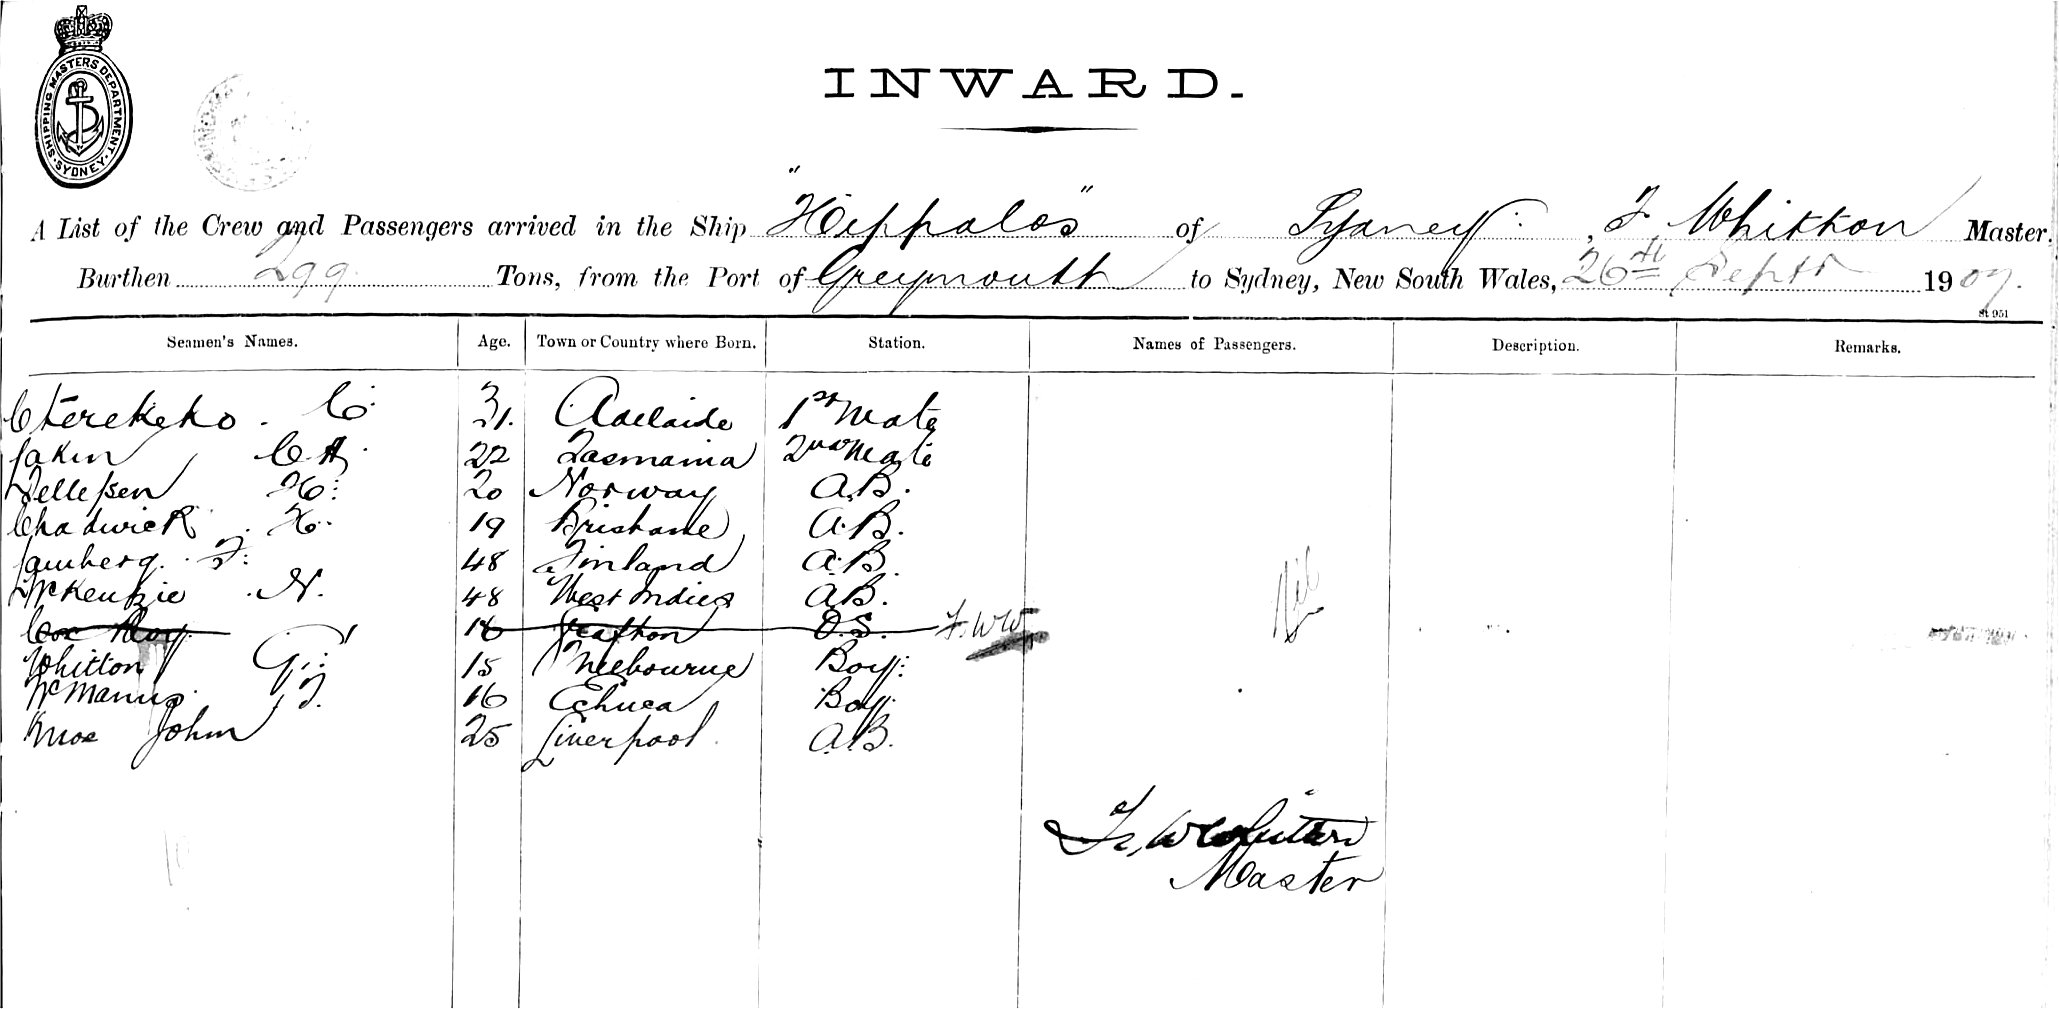 SHIPPING MASTERS DEPARTMENT. SYDNEY
INWARD.
A List of the Crew and Passengers arrived in the Ship "Hippalos" of Sydney, F. Whitton Master.
Burthen 299 Tons, from the Port of Greymouth to Sydney, New South Wales, 26th Septr 1907.
St 951
Seamen's Names. Age. Town or Country where Born. Station. Names of Passengers. Description. Remarks.
C. 31. Adelaide 1st Mate
Jakin C. H. 22 Tasmania 2nd Mate
Tellefsen H. 20 Norway A.B.
Chadwick H. 19 Brisbane A.B.
Jamberg. F. 48 Finland A.B.
McKenzie N. 48 West Indies A.B.
Cox Roy. 18 Grafton O.S. F.W.W. Nil
Whitton G. 15 Melbourne Boy.
McManus J. 16 Echuca Boy.
John 25 Liverpool. A.B.
F. W Whitton
Master